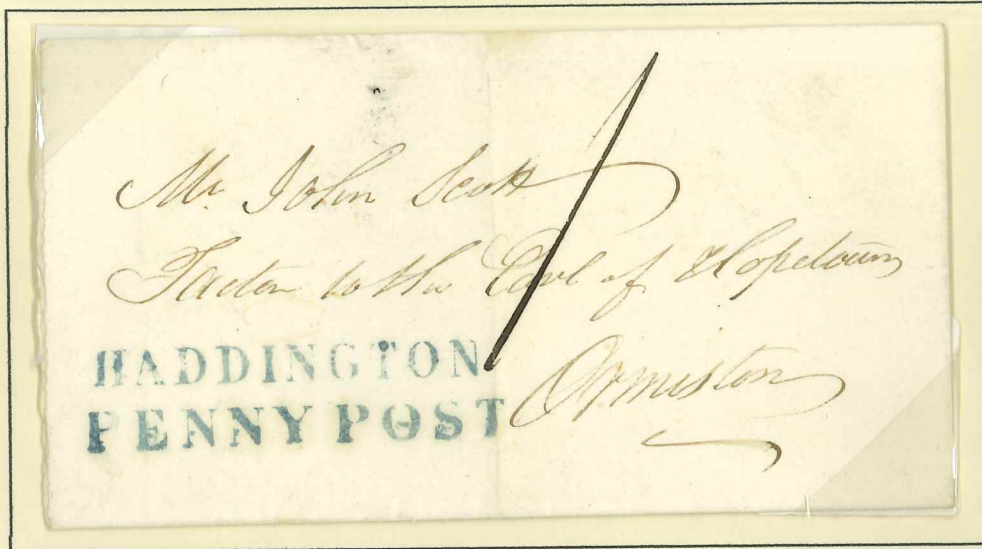 Mr. John Scott
Factor to the Earl of Hopetoun
Ormiston
HADDINGTON
PENNY POST
1